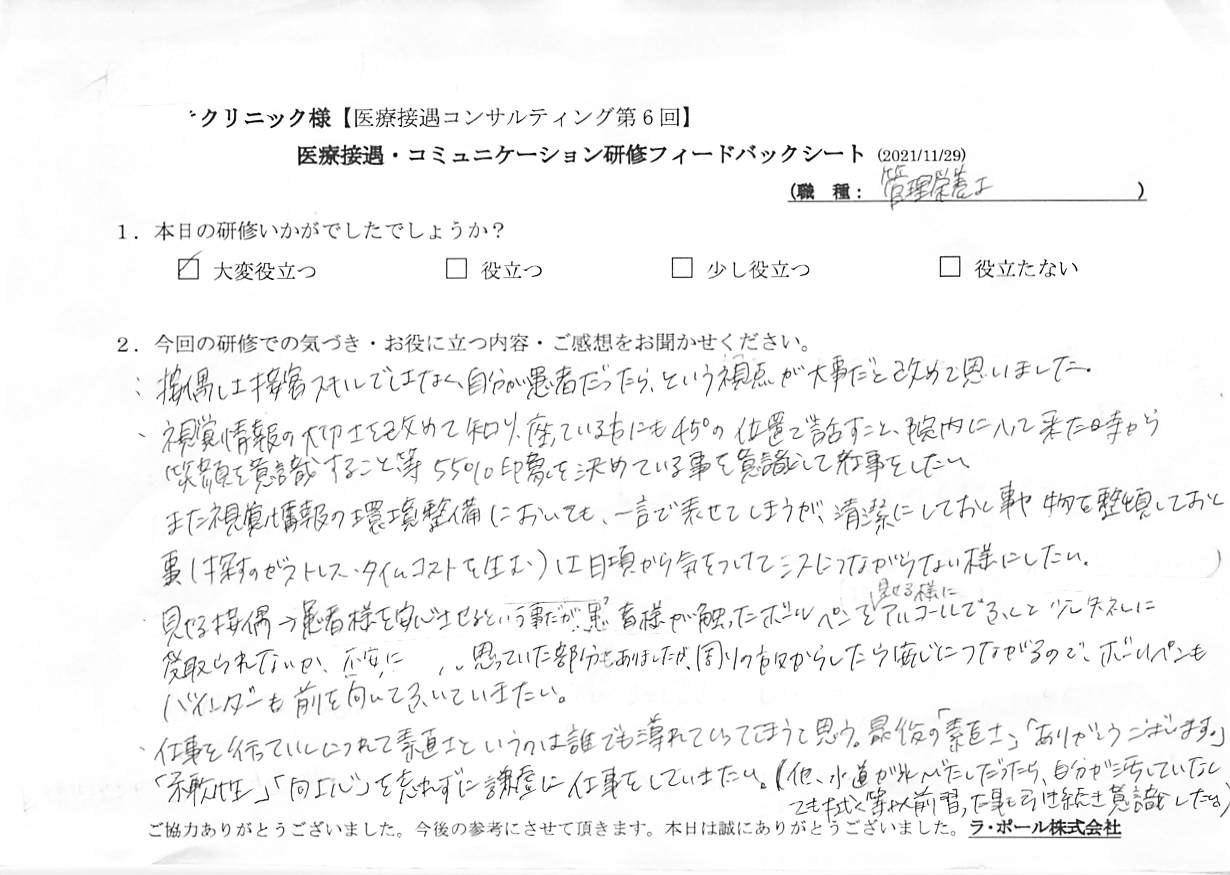 クリニック様【医療接遇コンサルティング第6回】
医療接遇・コミュニケーション研修フィードバックシート (2021/11/29)
(職 種: 管理栄養士 )
1．本日の研修いかがでしたでしょうか？
☑ 大変役立つ □ 役立つ □ 少し役立つ □ 役立たない
2．今回の研修での気づき・お役に立つ内容・ご感想をお聞かせください。
・接偶は接客スキルではなく、自分が患者だったら、という視点が大事だと改めて思いました。
・視覚情報の大切さを改めて知り、座っている方にも45°の位置で話すこと、院内に入って来た時から
笑顔を意識すること等55%印象を決めている事を意識して仕事をしたい
また視覚情報の環境整備においても、一言で表せてしまうが、清潔にしておく事や物を整頓しておく
事(探すのがストレス、タイムコストを生む)は日頃から気をつけてミスにつながらない様にしたい。
・見せる接偶→患者様を安心させるという事だが、患者様が触ったボールペンを見せる様にアルコールでふくと少し失礼に
受取られないか、不安に思っていた部分もありましたが、周りの方からしたら安心につながるので、ボールペンも
バインダーも前を向いてふいていきたい。
・仕事を行っていくにつれて素直さというのは誰でも薄れていってしまうと思う。最後の「素直さ」「ありがとうございます。」
「柔軟性」「向上心」を忘れずに謙虚に仕事をしていきたい。(他、水道が水びたしだったら、自分が汚していなく
ても拭く等や前習った事も引き続き意識したい)
ご協力ありがとうございました。今後の参考にさせて頂きます。本日は誠にありがとうございました。ラ・ポール株式会社